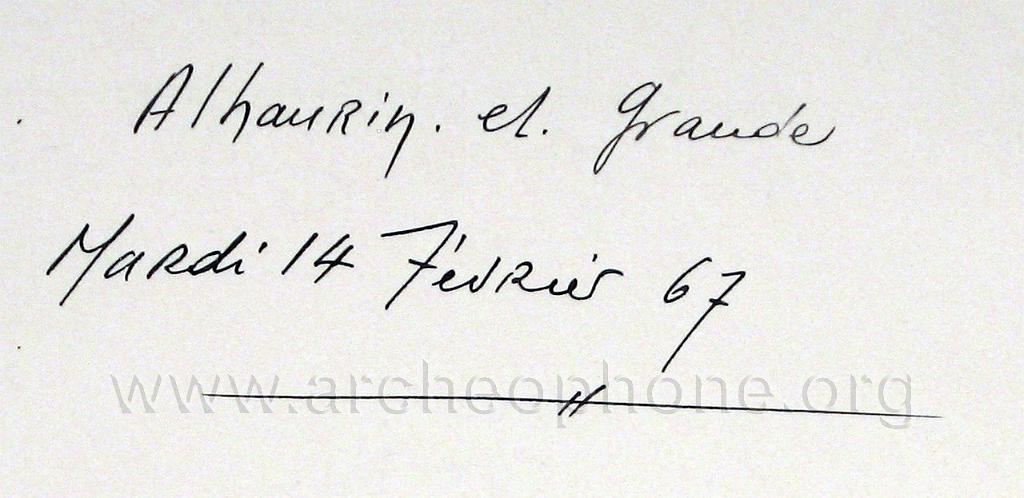 Alhaurin. el. Grande
Mardi 14 Février 67
www.archeophone.org